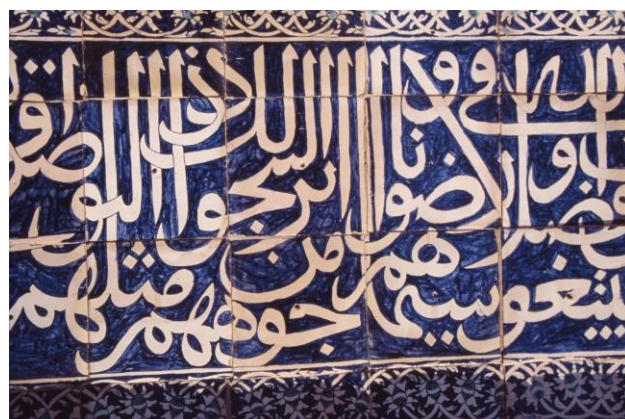 يبتغون فضلا من الله ورضوانا سيماهم في وجوههم من اثر السجود ذلك مثلهم في